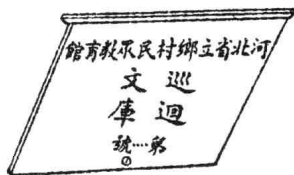 河北省立鄉村民眾教育館
巡迴
文庫
第…號